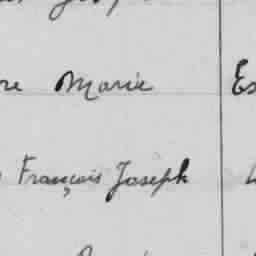 re Marie Es
François Joseph